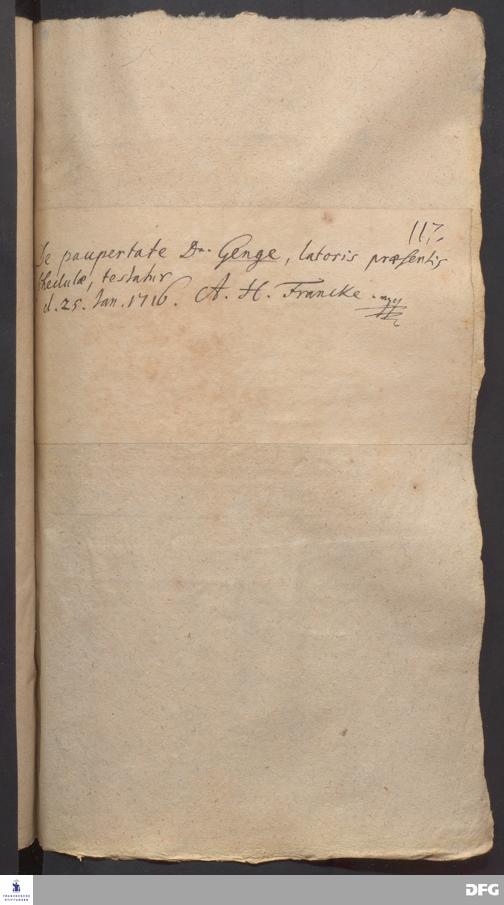 117.
De paupertate Dn. Genge, latoris præsentis
schedulæ, testatur
d. 25. Jan. 1716. A. H. Francke.
FRANCKESCHE
STIFTUNGEN
DFG